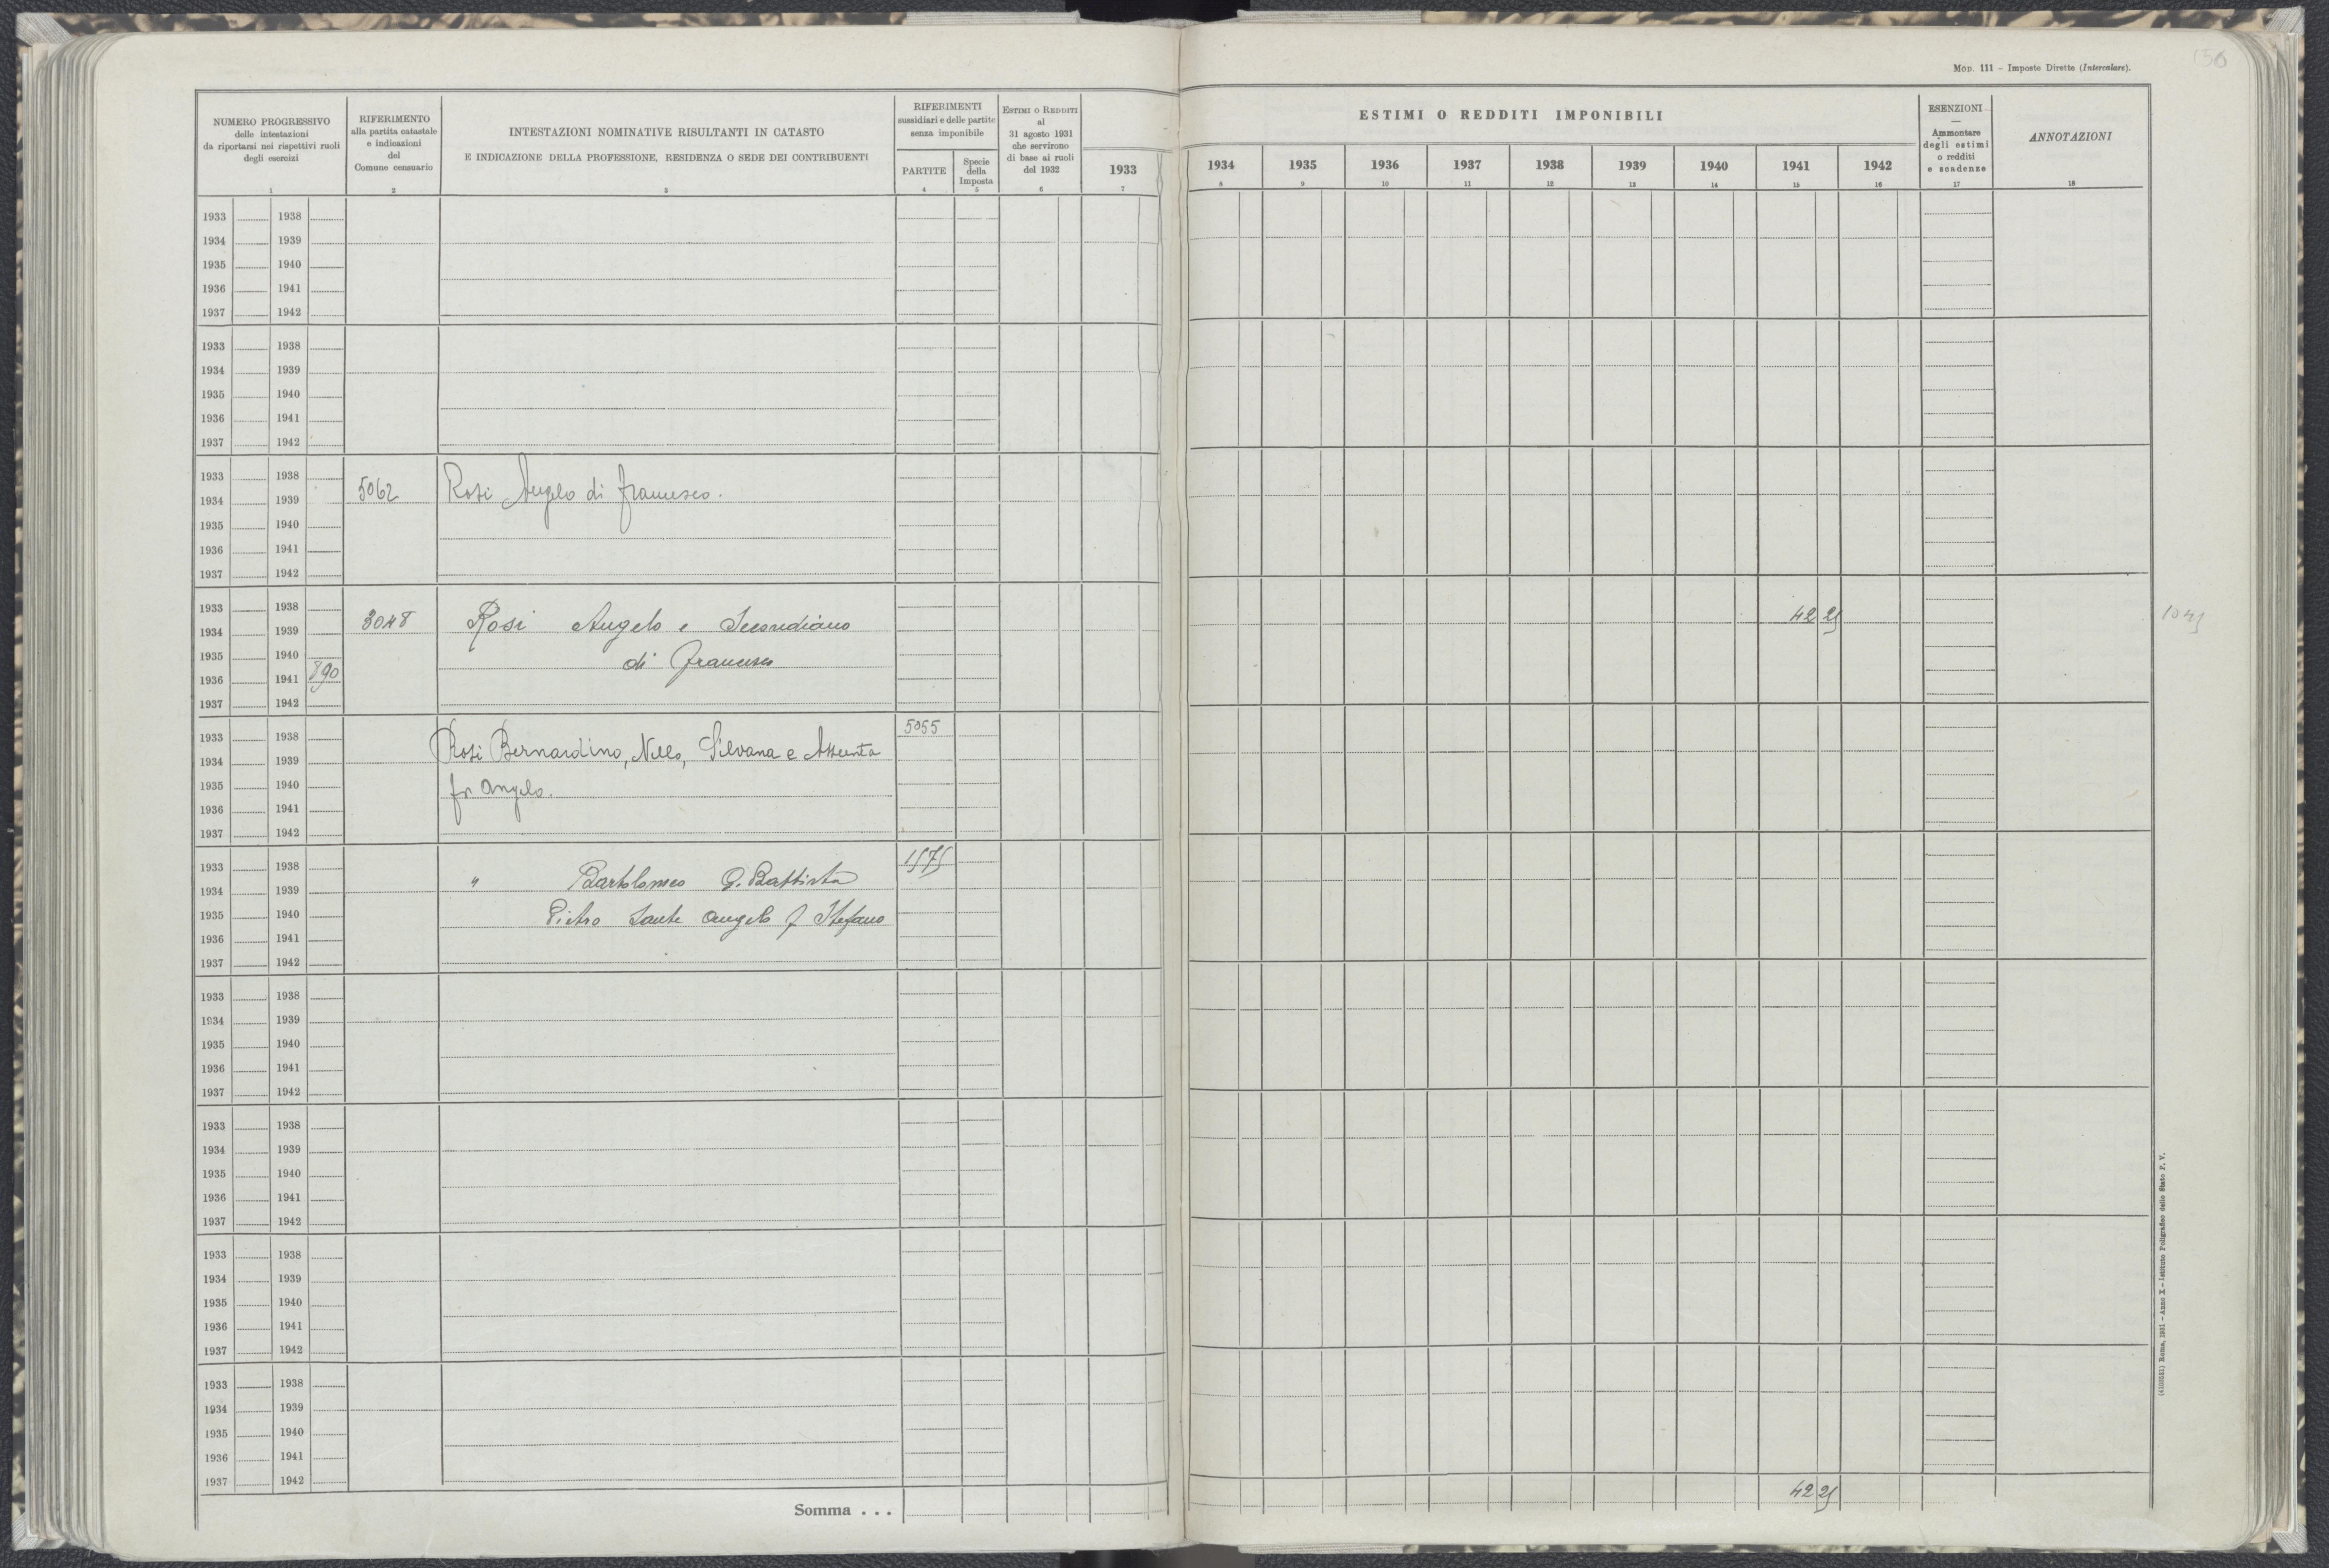 156
MOD. 111 – Imposte Dirette (Intercalare).
NUMERO PROGRESSIVO
delle intestazioni
da riportarsi nei rispettivi ruoli
degli esercizi
1
RIFERIMENTO
alla partita catastale
e indicazioni
del
Comune censuario
2
INTESTAZIONI NOMINATIVE RISULTANTI IN CATASTO
E INDICAZIONE DELLA PROFESSIONE, RESIDENZA O SEDE DEI CONTRIBUENTI
3
RIFERIMENTI
sussidiari e delle partite
senza imponibile
PARTITE
4
Specie
della
Imposta
5
ESTIMI O REDDITI
al
31 agosto 1931
che servirono
di base ai ruoli
del 1932
6
1933
7
ESTIMI O REDDITI IMPONIBILI
1934 1935 1936 1937 1938 1939 1940 1941 1942
8 9 10 11 12 13 14 15 16
ESENZIONI
—
Ammontare
degli estimi
o redditi
e scadenze
17
ANNOTAZIONI
18
1933 1938
1934 1939
1935 1940
1936 1941
1937 1942
1933 1938
1934 1939
1935 1940
1936 1941
1937 1942
1933 1938
1934 1939 5062 Rosi Angelo di Francesco.
1935 1940
1936 1941
1937 1942
1933 1938
1934 1939 3048 Rosi Angelo e Secondiano 42 25
1935 1940 di Francesco
1936 1941 890
1937 1942
1933 1938 5055
1934 1939 Rosi Bernardino, Nello, Silvana e Assunta
1935 1940 fu Angelo.
1936 1941
1937 1942
1933 1938 1575
1934 1939 " Bartolomeo G. Battista
1935 1940 Pietro Sante Angelo f Stefano
1936 1941
1937 1942
1933 1938
1934 1939
1935 1940
1936 1941
1937 1942
1933 1938
1934 1939
1935 1940
1936 1941
1937 1942
1933 1938
1934 1939
1935 1940
1936 1941
1937 1942
1933 1938
1934 1939
1935 1940
1936 1941
1937 1942
Somma . . . 42 25
(4100531) Roma, 1931 – Anno X – Istituto Poligrafico dello Stato P. V.